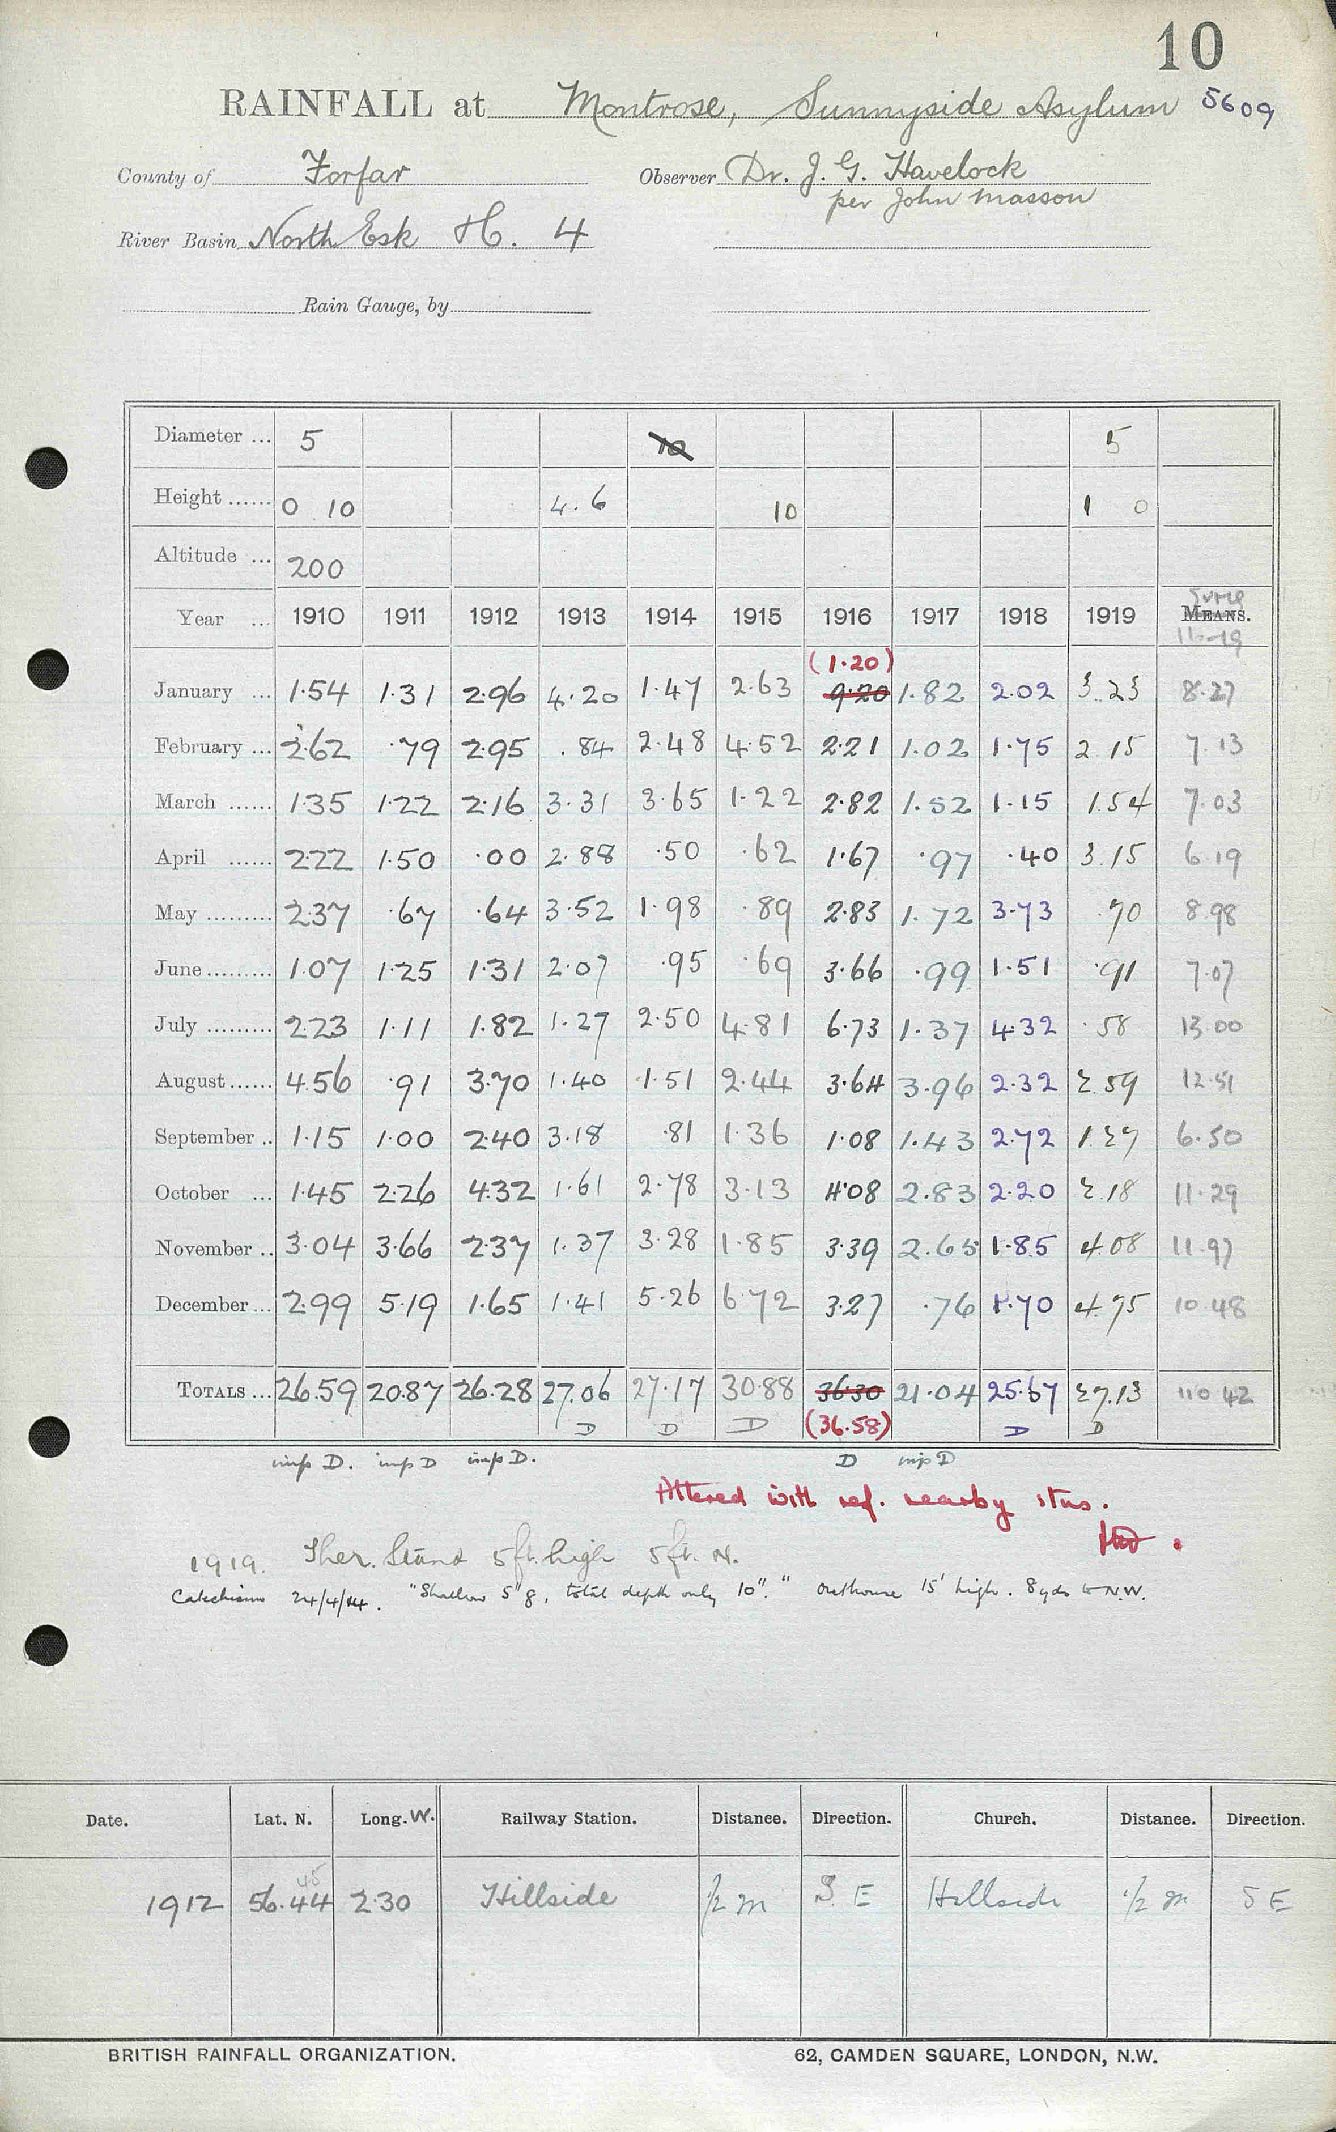 10
RAINFALL at Montrose, Sunnyside Asylum 5609
County of Forfar Observer Dr. J. G. Havelock
per John Masson
River Basin North Esk H. 4
Rain Gauge, by
Diameter ... 5 10 5
Height ...... 0 10 4.6 10 1 0
Altitude ... 200
Year ... 1910 1911 1912 1913 1914 1915 1916 1917 1918 1919 MEANS.
(1.20)
January ... 1.54 1.31 2.96 4.20 1.47 2.63 9.20 1.82 2.02 3.23 8.27
February ... 2.62 .79 2.95 .84 2.48 4.52 2.21 1.02 1.75 2.15 7.13
March ...... 1.35 1.22 2.16 3.31 3.65 1.22 2.82 1.52 1.15 1.54 7.03
April ...... 2.22 1.50 .00 2.88 .50 .62 1.67 .97 .40 3.15 6.19
May ......... 2.37 .67 .64 3.52 1.98 .89 2.83 1.72 3.73 .70 8.98
June ......... 1.07 1.25 1.31 2.07 .95 .69 3.66 .99 1.51 .91 7.07
July ......... 2.23 1.11 1.82 1.27 2.50 4.81 6.73 1.37 4.32 .58 13.00
August ...... 4.56 .91 3.70 1.40 1.51 2.44 3.64 3.96 2.32 2.59 12.51
September .. 1.15 1.00 2.40 3.18 .81 1.36 1.08 1.43 2.72 1.27 6.50
October ... 1.45 2.26 4.32 1.61 2.78 3.13 4.08 2.83 2.20 2.18 11.29
November .. 3.04 3.66 2.37 1.37 3.28 1.85 3.39 2.65 1.85 4.08 11.97
December ... 2.99 5.19 1.65 1.41 5.26 6.72 3.27 .76 1.70 4.75 10.48
TOTALS ... 26.59 20.87 26.28 27.06 27.17 30.88 36.30 21.04 25.67 27.13 110.42
D D D (36.58) D D
imp D. imp D imp D. D imp D
Altered with ref. nearby stns.
1919. Ther. Stand 5ft. high 5ft. N.
Catechism 24/4/14. "Shallow 5" g, total depth only 10"." Outhouse 15' high. 8 yds to N.W.
Date. Lat. N. Long. W. Railway Station. Distance. Direction. Church. Distance. Direction.
45
1912 56.44 2.30 Hillside 1/2 m S.E Hillside 1/2 m S E
BRITISH RAINFALL ORGANIZATION. 62, CAMDEN SQUARE, LONDON, N.W.